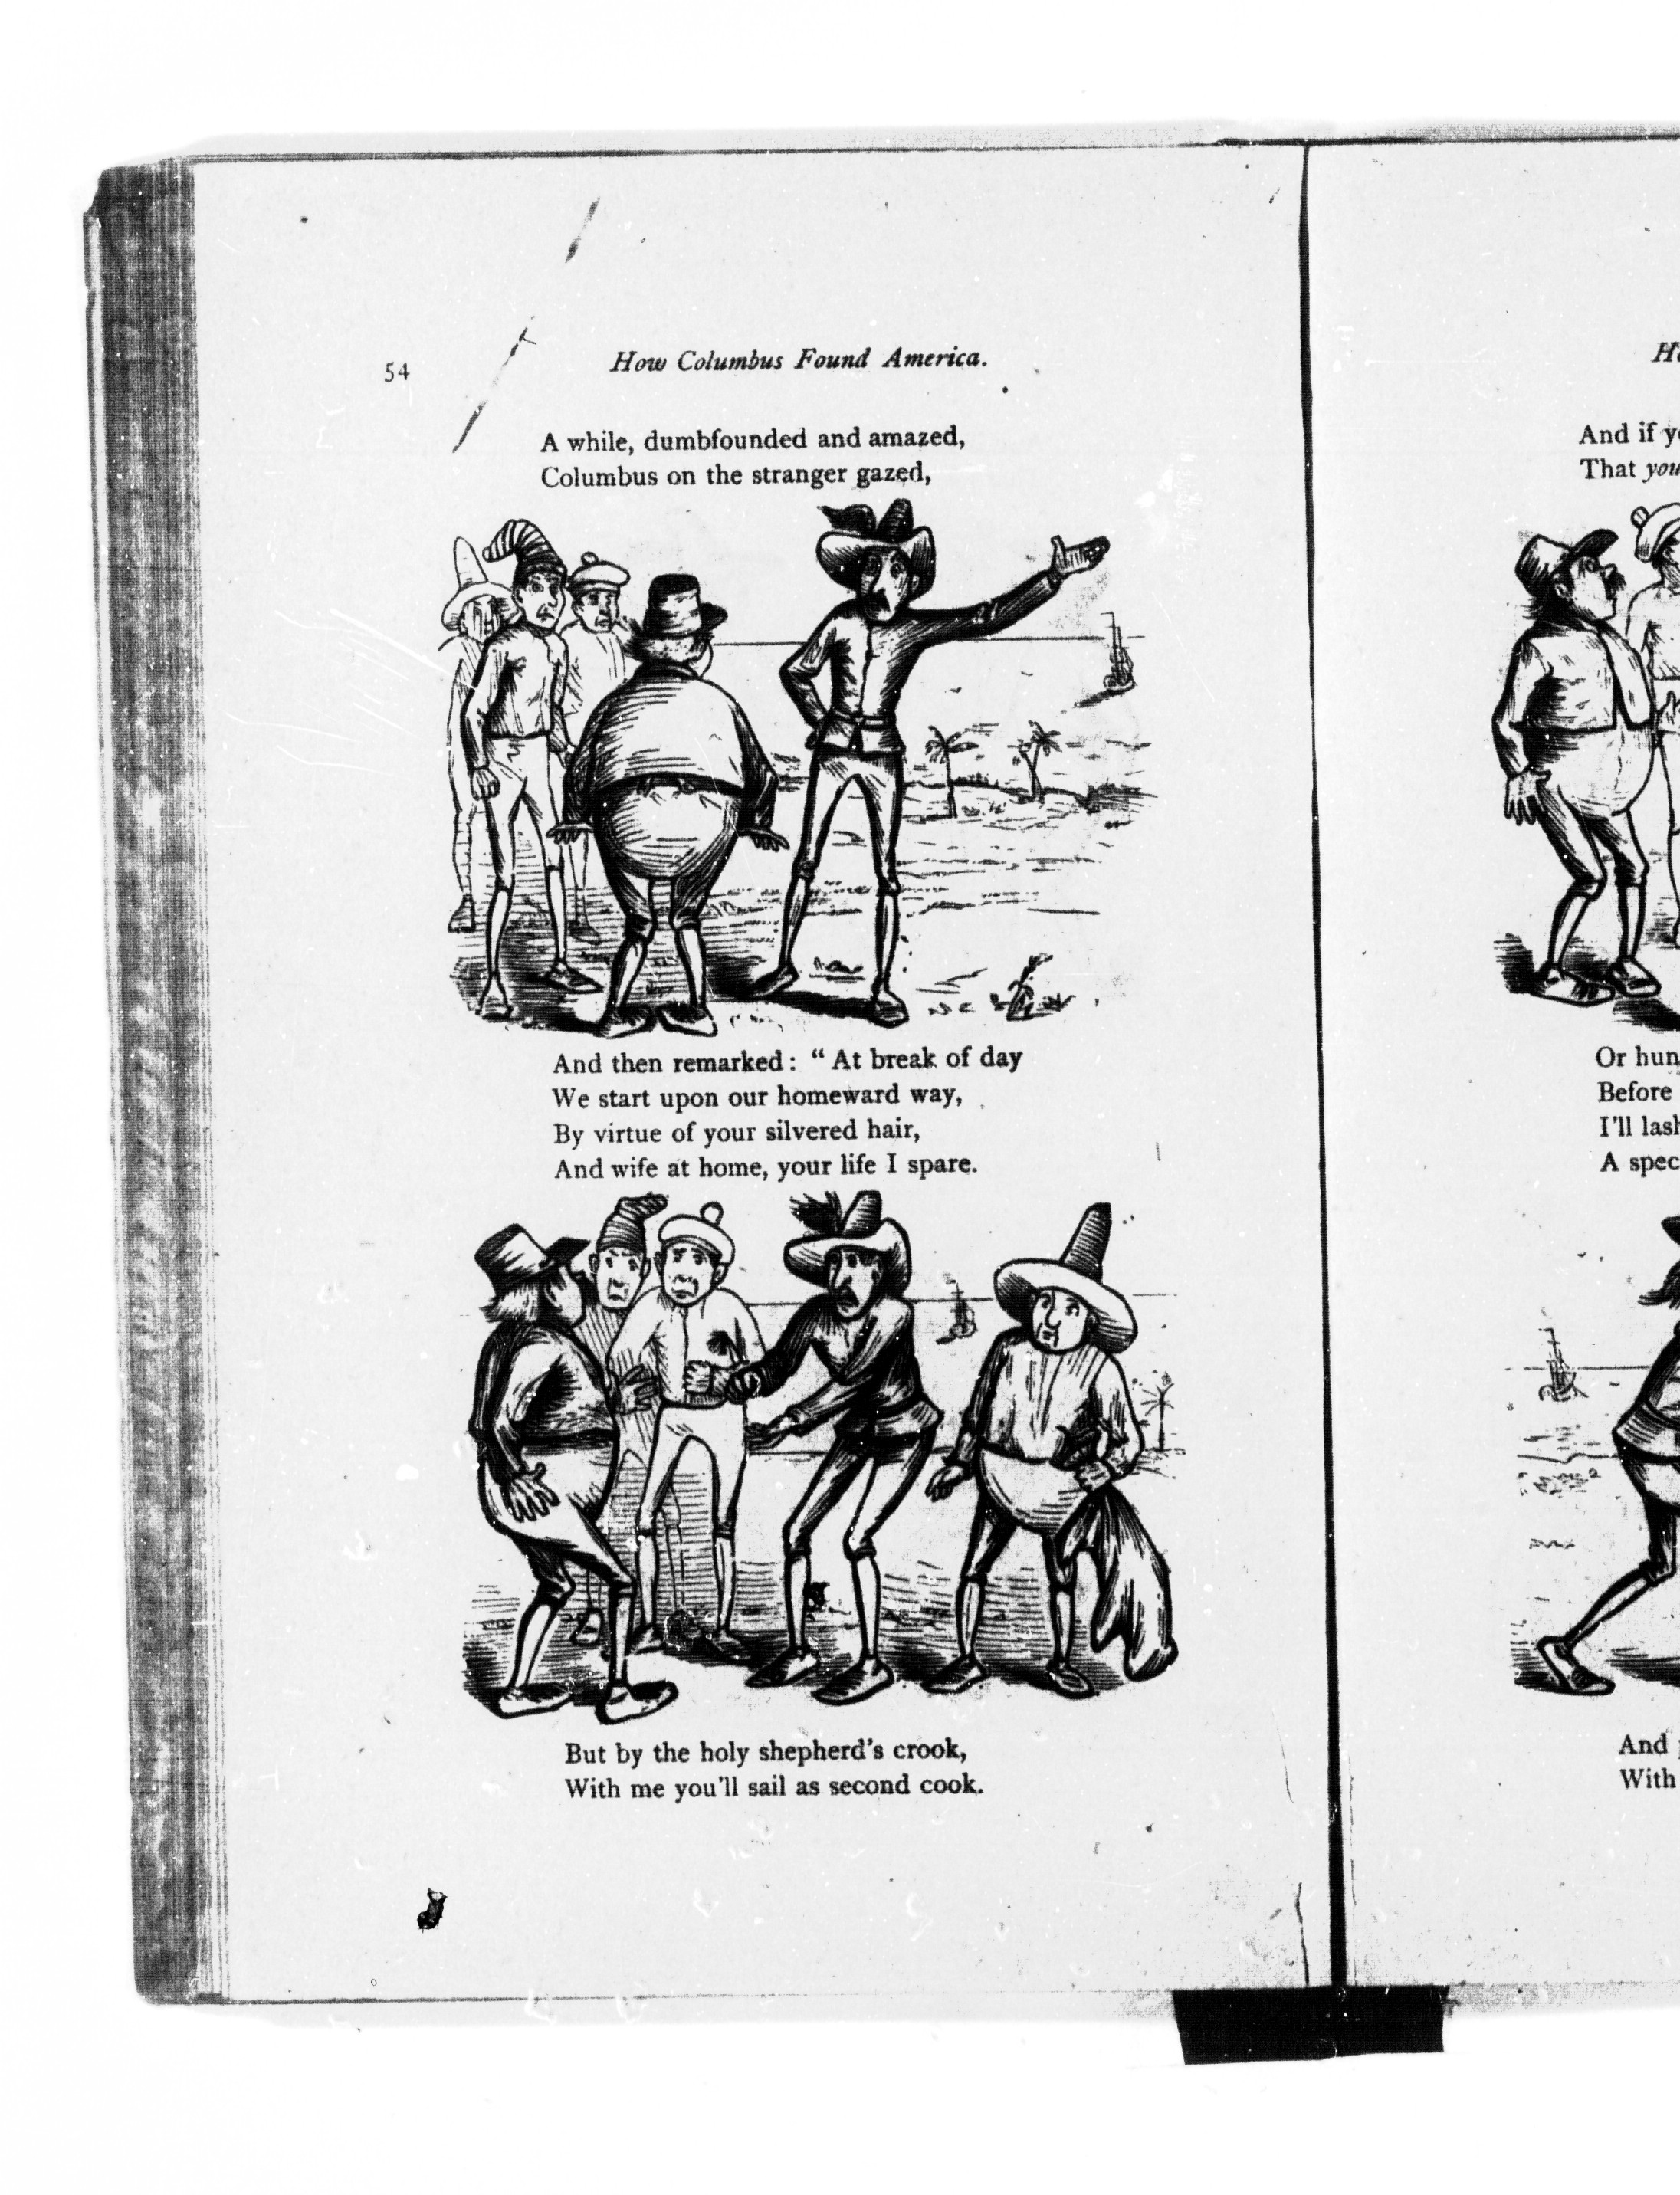 54
How Columbus Found America.
A while, dumbfounded and amazed,
Columbus on the stranger gazed,
And then remarked: “ At break of day
We start upon our homeward way,
By virtue of your silvered hair,
And wife at home, your life I spare.
But by the holy shepherd's crook,
With me you'll sail as second cook.
And if
That
Or
Before
I'll
A
And
With